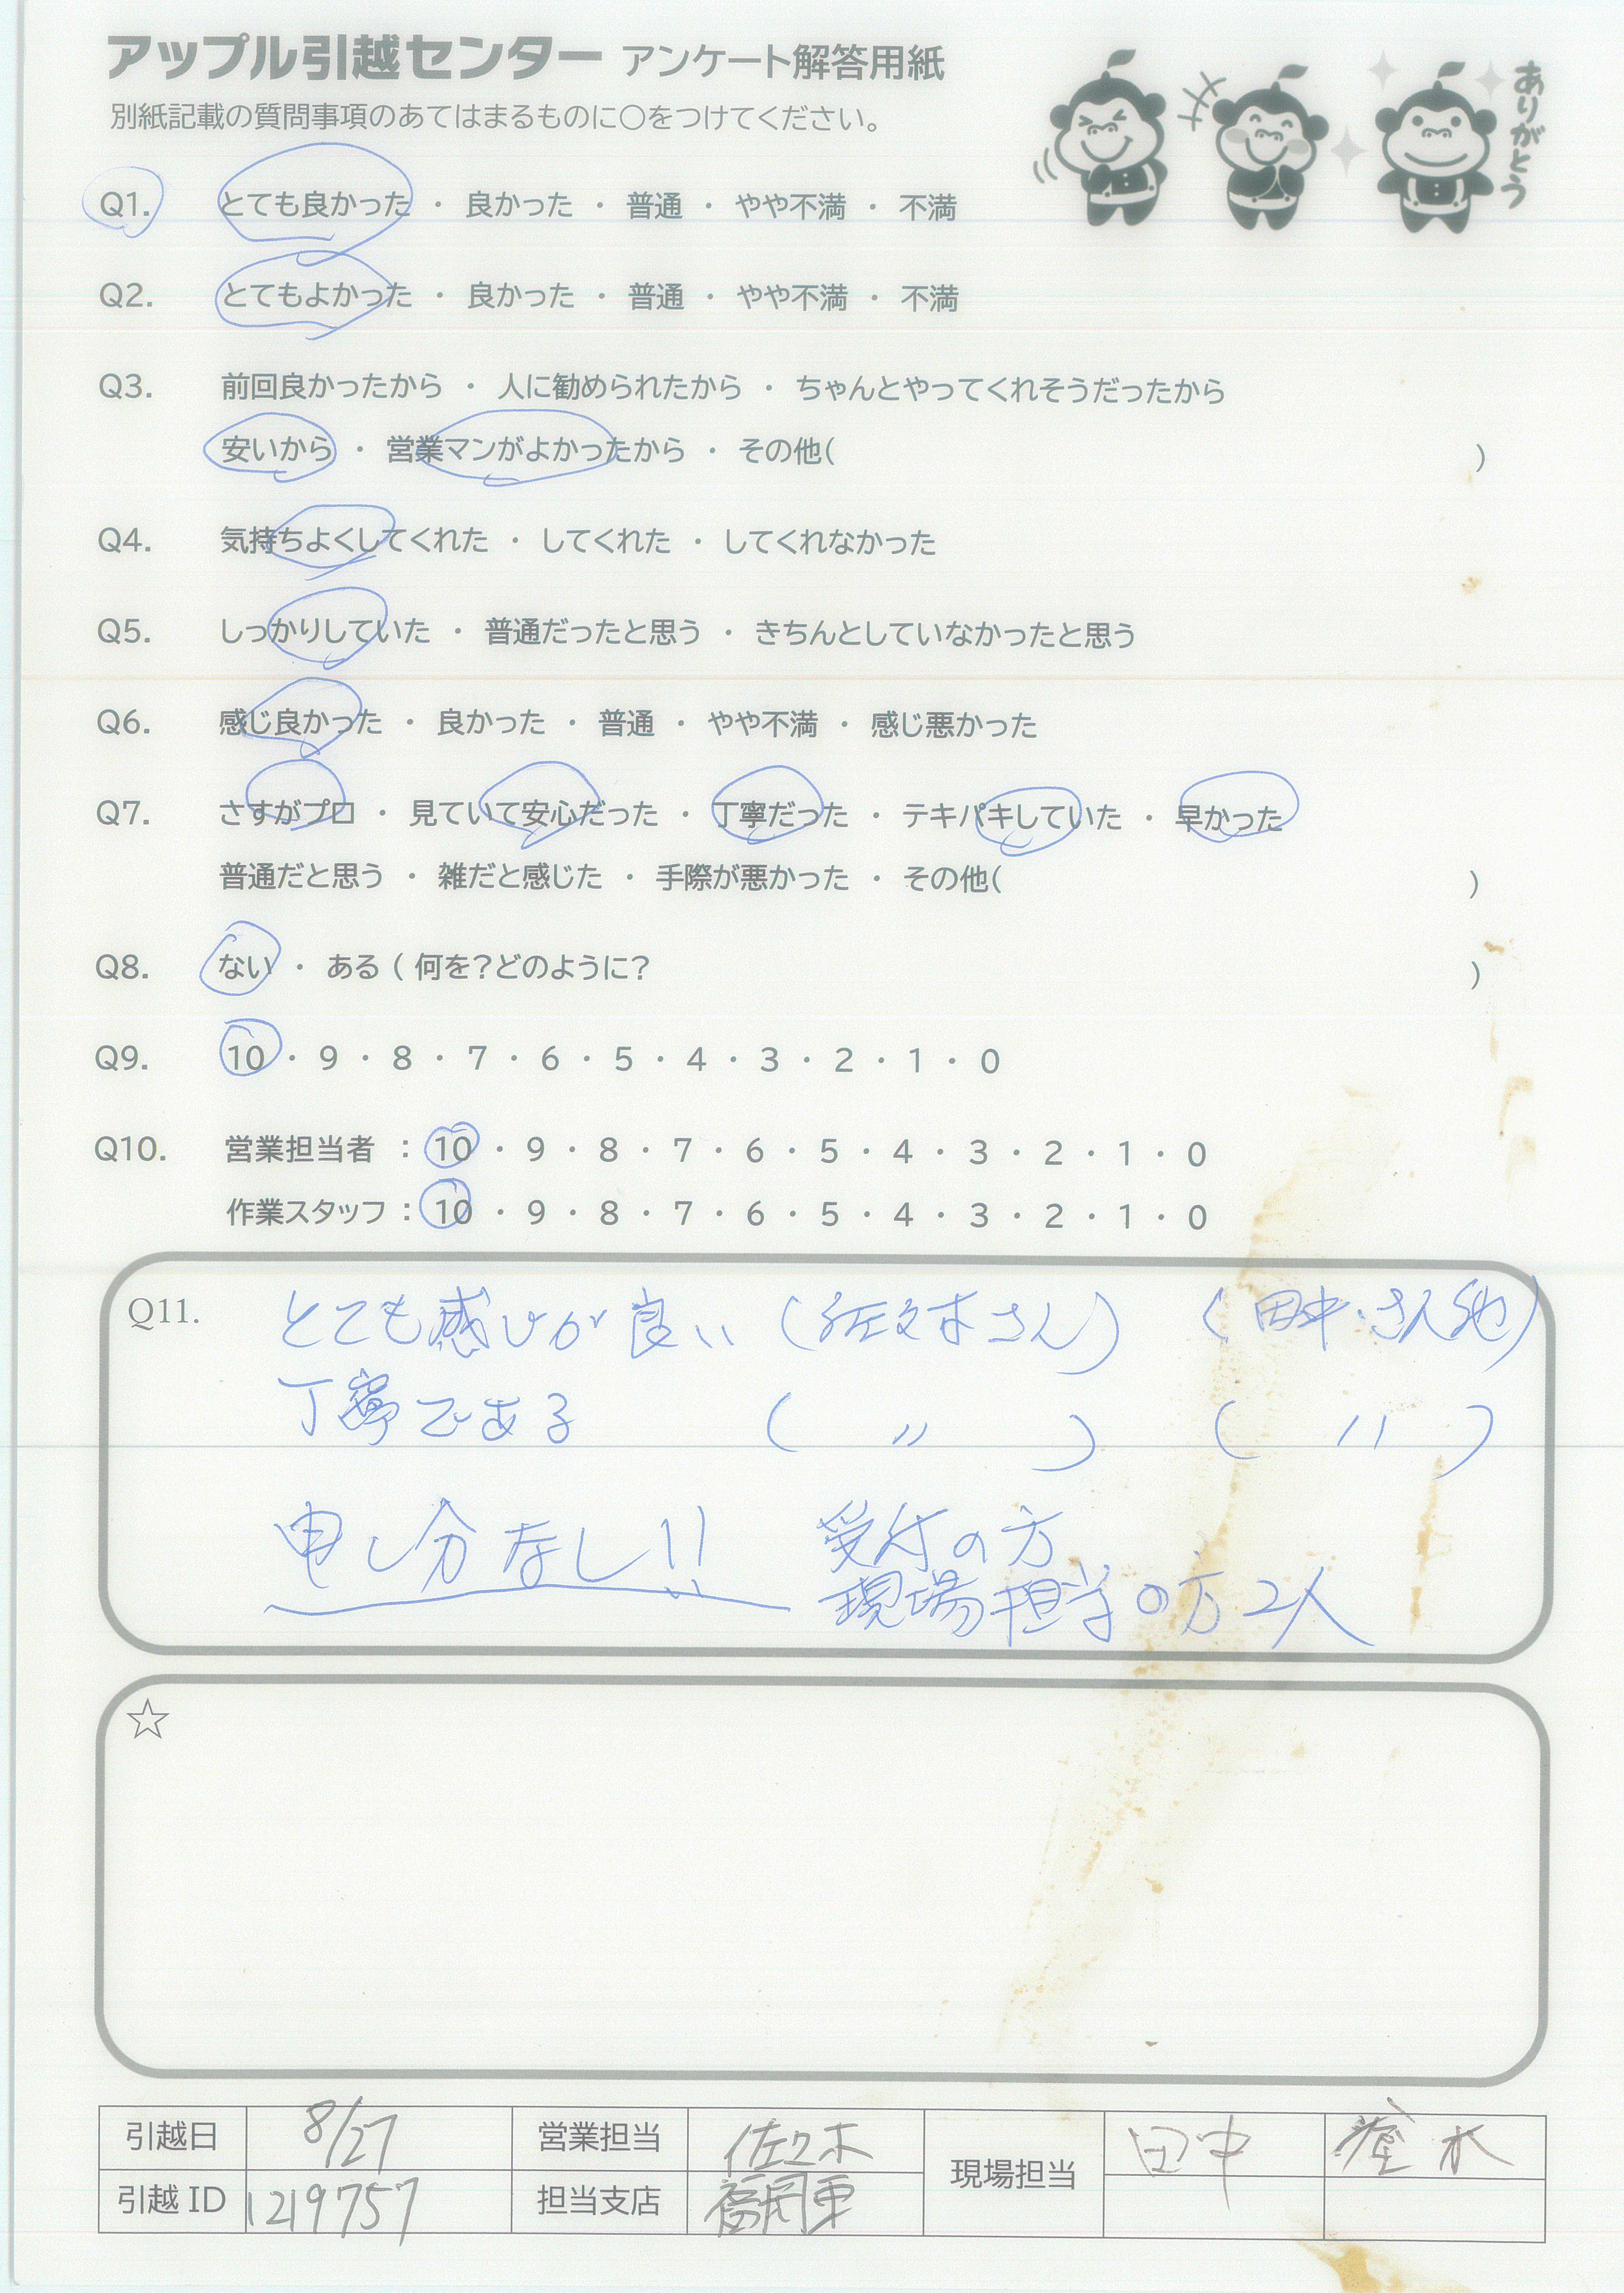 アップル引越センター アンケート解答用紙
ありがとう
別紙記載の質問事項のあてはまるものに○をつけてください。
Q1. とても良かった ・ 良かった ・ 普通 ・ やや不満 ・ 不満
Q2. とてもよかった ・ 良かった ・ 普通 ・ やや不満 ・ 不満
Q3. 前回良かったから ・ 人に勧められたから ・ ちゃんとやってくれそうだったから
安いから ・ 営業マンがよかったから ・ その他( )
Q4. 気持ちよくしてくれた ・ してくれた ・ してくれなかった
Q5. しっかりしていた ・ 普通だったと思う ・ きちんとしていなかったと思う
Q6. 感じ良かった ・ 良かった ・ 普通 ・ やや不満 ・ 感じ悪かった
Q7. さすがプロ ・ 見ていて安心だった ・ 丁寧だった ・ テキパキしていた ・ 早かった
普通だと思う ・ 雑だと感じた ・ 手際が悪かった ・ その他( )
Q8. ない ・ ある ( 何を?どのように? )
Q9. 10 ・ 9 ・ 8 ・ 7 ・ 6 ・ 5 ・ 4 ・ 3 ・ 2 ・ 1 ・ 0
Q10. 営業担当者 : 10 ・ 9 ・ 8 ・ 7 ・ 6 ・ 5 ・ 4 ・ 3 ・ 2 ・ 1 ・ 0
作業スタッフ : 10 ・ 9 ・ 8 ・ 7 ・ 6 ・ 5 ・ 4 ・ 3 ・ 2 ・ 1 ・ 0
Q11. とても感じが良い (佐々木さん) (田中さん他)
丁寧である ( 〃 ) ( 〃 )
申し分なし!! 受付の方
現場担当の方2人
☆
引越日 8/27 営業担当 佐々木 現場担当 田中
引越 ID 1219757 担当支店 福岡東